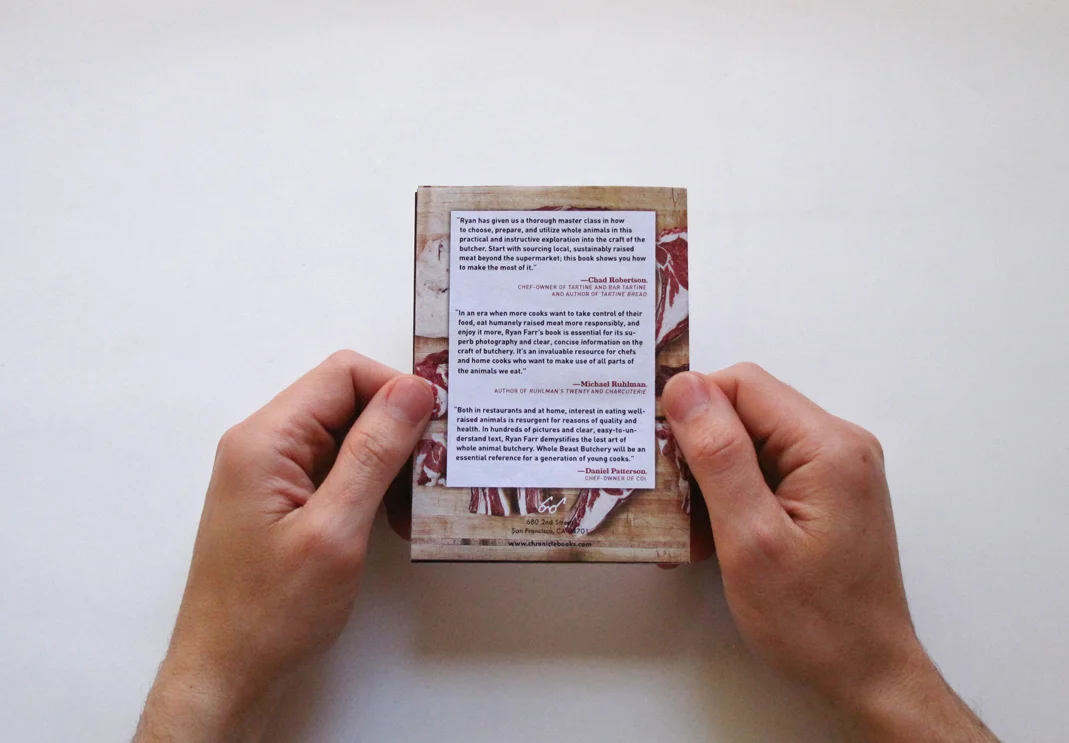 "Ryan has given us a thorough master class in how
to choose, prepare, and utilize whole animals in this
practical and instructive exploration into the craft of the
butcher. Start with sourcing local, sustainably raised
meat beyond the supermarket; this book shows you how
to make the most of it."
—Chad Robertson,
CHEF-OWNER OF TARTINE AND BAR TARTINE
AND AUTHOR OF TARTINE BREAD
"In an era when more cooks want to take control of their
food, eat humanely raised meat more responsibly, and
enjoy it more, Ryan Farr's book is essential for its su-
perb photography and clear, concise information on the
craft of butchery. It's an invaluable resource for chefs
and home cooks who want to make use of all parts of
the animals we eat."
—Michael Ruhlman,
AUTHOR OF RUHLMAN'S TWENTY AND CHARCUTERIE
"Both in restaurants and at home, interest in eating well-
raised animals is resurgent for reasons of quality and
health. In hundreds of pictures and clear, easy-to-un-
derstand text, Ryan Farr demystifies the lost art of
whole animal butchery. Whole Beast Butchery will be an
essential reference for a generation of young cooks."
—Daniel Patterson,
CHEF-OWNER OF COI
680 2nd Street
San Francisco, CA
www.chroniclebooks.com